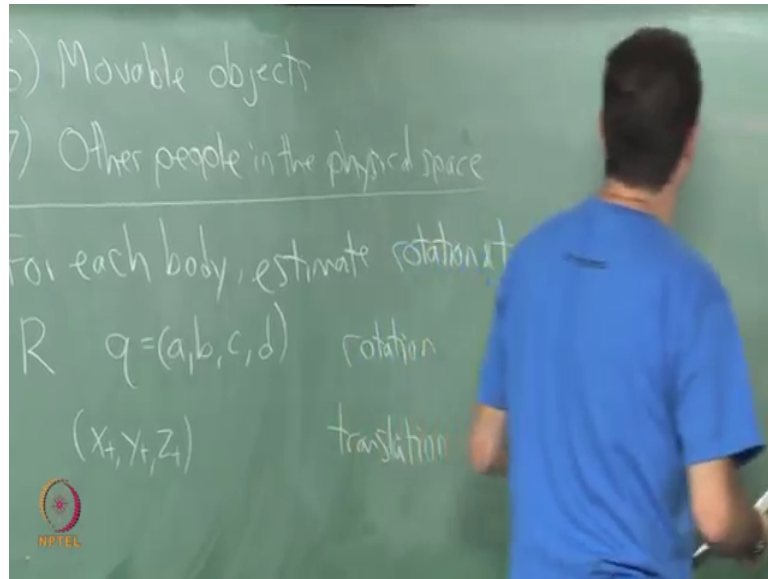 ) Movable objects
) Other people in the physical space
For each body, estimate rotation
R q=(a,b,c,d) rotation
(Xt,Yt,Zt) translation
NPTEL